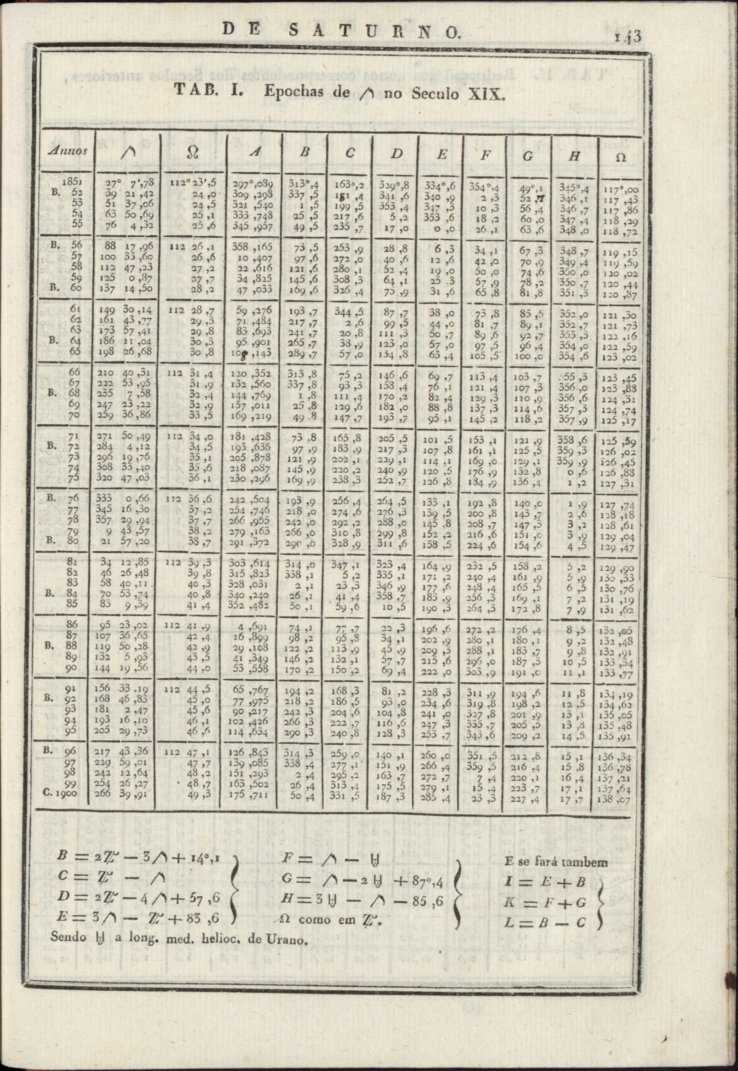 DE SATURNO. 143
TAB. I. Epochas de ♄ no Seculo XIX.
Annos ♄ ☊ A B C D E F G H Ω
1851 27° 7',78 112° 23',5 297°,089 313°,4 163°,2 329°,8 334°,6 354°,4 49°,1 345°,4 117°,00
B. 52 39 21 ,42 24 ,0 309 ,298 337 ,5 181 ,4 341 ,6 340 ,9 2 ,3 346 ,1 117 ,43
53 51 37 ,06 24 ,5 321 ,540 1 ,5 199 ,5 353 ,4 347 ,3 10 ,3 56 ,4 346 ,7 117 ,86
54 63 50 ,69 25 ,1 333 ,748 25 ,5 217 ,6 5 ,2 353 ,6 18 ,2 60 ,0 347 ,4 118 ,29
55 76 4 ,32 25 ,6 345 ,957 49 ,5 235 ,7 17 ,0 0 ,0 26 ,1 63 ,6 348 ,0 118 ,72
B. 56 88 17 ,96 112 26 ,1 358 ,165 73 ,5 253 ,9 28 ,8 6 ,3 34 ,1 67 ,3 348 ,7 119 ,15
57 100 33 ,60 26 ,6 10 ,407 97 ,6 272 ,0 40 ,6 12 ,6 42 ,0 70 ,9 349 ,4 119 ,59
58 112 47 ,23 27 ,2 22 ,616 121 ,6 280 ,1 52 ,4 19 ,0 50 ,0 74 ,6 350 ,0 120 ,02
59 125 0 ,87 27 ,7 34 ,825 145 ,6 308 ,3 64 ,1 25 ,3 57 ,9 78 ,2 350 ,7 120 ,44
B. 60 137 14 ,50 28 ,2 47 ,033 169 ,6 326 ,4 75 ,9 31 ,6 65 ,8 81 ,8 351 ,3 120 ,87
61 149 30 ,14 112 28 ,7 59 ,276 193 ,7 344 ,5 87 ,7 38 ,0 73 ,8 85 ,5 352 ,0 121 ,30
62 161 43 ,77 29 ,3 71 ,484 217 ,7 2 ,6 99 ,5 44 ,0 81 ,7 89 ,1 352 ,7 121 ,73
63 173 57 ,41 29 ,8 83 ,693 241 ,7 20 ,8 111 ,3 50 ,7 89 ,6 92 ,7 353 ,3 122 ,16
B. 64 186 11 ,04 30 ,3 95 ,901 265 ,7 38 ,9 123 ,0 57 ,0 97 ,5 96 ,4 354 ,0 122 ,59
65 198 26 ,68 30 ,8 108 ,143 289 ,7 57 ,0 134 ,8 63 ,4 105 ,5 100 ,0 354 ,6 123 ,02
66 210 40 ,31 112 31 ,4 120 ,352 313 ,8 75 ,2 146 ,6 69 ,7 113 ,4 103 ,7 55 ,3 123 ,45
67 222 53 ,95 31 ,9 132 ,560 337 ,8 93 ,3 158 ,4 76 ,1 121 ,4 107 ,3 356 ,0 123 ,88
B. 68 235 7 ,58 32 ,4 144 ,769 1 ,8 111 ,4 170 ,2 82 ,4 129 ,3 110 ,9 356 ,6 124 ,31
69 247 23 ,22 32 ,9 157 ,011 25 ,8 129 ,6 182 ,0 88 ,8 137 ,3 114 ,6 357 ,3 124 ,74
70 259 36 ,86 33 ,5 169 ,219 49 ,8 147 ,7 193 ,7 95 ,1 145 ,2 118 ,2 357 ,9 125 ,17
B. 71 271 50 ,49 112 34 ,0 181 ,428 73 ,8 165 ,8 205 ,5 101 ,5 153 ,1 121 ,9 358 ,6 125 ,59
72 284 4 ,12 34 ,5 193 ,636 97 ,9 183 ,9 217 ,3 107 ,8 161 ,1 125 ,5 359 ,3 126 ,02
73 296 19 ,76 35 ,1 205 ,878 121 ,9 202 ,1 229 ,1 114 ,1 169 ,0 129 ,1 359 ,9 126 ,45
74 308 33 ,40 35 ,6 218 ,087 145 ,9 220 ,2 240 ,9 120 ,5 176 ,9 132 ,8 0 ,6 126 ,88
75 320 47 ,03 36 ,1 230 ,296 169 ,9 238 ,3 252 ,7 126 ,8 184 ,9 136 ,4 1 ,2 127 ,31
B. 76 333 0 ,66 112 36 ,6 242 ,504 193 ,9 256 ,4 264 ,5 133 ,1 192 ,8 140 ,0 1 ,9 127 ,74
77 345 16 ,30 37 ,2 254 ,746 218 ,0 274 ,6 276 ,3 139 ,5 200 ,8 143 ,7 2 ,6 128 ,18
78 357 29 ,94 37 ,7 266 ,955 242 ,0 292 ,2 288 ,0 145 ,8 208 ,7 147 ,3 3 ,2 128 ,61
79 9 43 ,57 38 ,2 279 ,163 266 ,0 310 ,8 299 ,8 152 ,2 216 ,6 151 ,0 3 ,9 129 ,04
B. 80 21 57 ,20 38 ,7 291 ,372 290 ,0 328 ,9 311 ,6 158 ,5 224 ,6 154 ,6 4 ,5 129 ,47
81 34 12 ,85 112 39 ,3 303 ,614 314 ,0 347 ,1 323 ,4 164 ,9 232 ,5 158 ,2 5 ,2 129 ,90
82 46 26 ,48 39 ,8 315 ,823 338 ,1 5 ,2 335 ,1 171 ,2 240 ,4 161 ,9 5 ,9 130 ,33
83 58 40 ,11 40 ,3 328 ,031 2 ,1 23 ,3 346 ,9 177 ,6 248 ,4 165 ,5 6 ,5 130 ,76
B. 84 70 53 ,74 40 ,8 340 ,240 26 ,1 41 ,4 358 ,7 183 ,9 256 ,3 169 ,1 7 ,2 131 ,19
85 83 9 ,39 41 ,4 352 ,482 50 ,1 59 ,6 10 ,5 190 ,3 264 ,3 172 ,8 7 ,9 131 ,62
86 95 23 ,02 112 41 ,9 4 ,691 74 ,1 77 ,7 22 ,3 196 ,6 272 ,2 176 ,4 8 ,5 132 ,05
87 107 36 ,65 42 ,4 16 ,899 98 ,2 95 ,8 34 ,1 202 ,9 280 ,1 180 ,1 9 ,2 132 ,48
B. 88 119 50 ,28 42 ,9 29 ,108 122 ,2 113 ,9 45 ,9 209 ,3 288 ,1 183 ,7 9 ,8 132 ,91
89 132 5 ,93 43 ,5 41 ,349 146 ,2 132 ,1 57 ,7 215 ,6 296 ,0 187 ,3 10 ,5 133 ,34
90 144 19 ,56 44 ,0 53 ,558 170 ,2 150 ,2 69 ,4 222 ,0 303 ,9 191 ,0 11 ,1 133 ,77
91 156 33 ,19 112 44 ,5 65 ,767 194 ,2 168 ,3 81 ,2 228 ,3 311 ,9 194 ,6 11 ,8 134 ,19
B. 92 168 46 ,83 45 ,0 77 ,975 218 ,2 186 ,5 93 ,0 234 ,6 319 ,8 198 ,2 12 ,5 134 ,62
93 181 2 ,47 45 ,6 90 ,217 242 ,3 204 ,6 104 ,8 241 ,0 327 ,8 201 ,9 13 ,1 135 ,05
94 193 16 ,10 46 ,1 102 ,426 266 ,3 222 ,7 116 ,6 247 ,3 335 ,7 205 ,5 13 ,8 135 ,48
95 205 29 ,73 46 ,6 114 ,634 290 ,3 240 ,8 128 ,3 253 ,7 343 ,6 209 ,2 14 ,5 135 ,91
B. 96 217 43 ,36 112 47 ,1 126 ,843 314 ,3 259 ,0 140 ,1 260 ,0 351 ,5 212 ,8 15 ,1 136 ,34
97 229 59 ,01 47 ,7 139 ,085 338 ,4 277 ,1 151 ,9 266 ,4 359 ,5 216 ,4 15 ,8 136 ,78
98 242 12 ,64 48 ,2 151 ,293 2 ,4 295 ,2 163 ,7 272 ,7 7 ,4 220 ,1 16 ,4 137 ,21
99 254 26 ,27 48 ,7 163 ,502 26 ,4 313 ,4 175 ,5 279 ,1 15 ,4 223 ,7 17 ,1 137 ,64
C. 1900 266 39 ,91 49 ,3 175 ,711 50 ,4 331 ,5 187 ,3 285 ,4 23 ,3 227 ,4 17 ,7 138 ,07
B = 2♃ − 3♄ + 14°,1 F = ♄ − ♅ E se fará tambem
C = ♃ − ♄ G = ♄ − 2♅ + 87°,4 I = E + B
D = 2♃ − 4♄ + 57 ,6 H = 3♅ − ♄ − 85 ,6 K = F + G
E = 3♄ − ♃ + 83 ,6 Ω como em ♃. L = B − C
Sendo ♅ a long. med. helioc. de Urano.